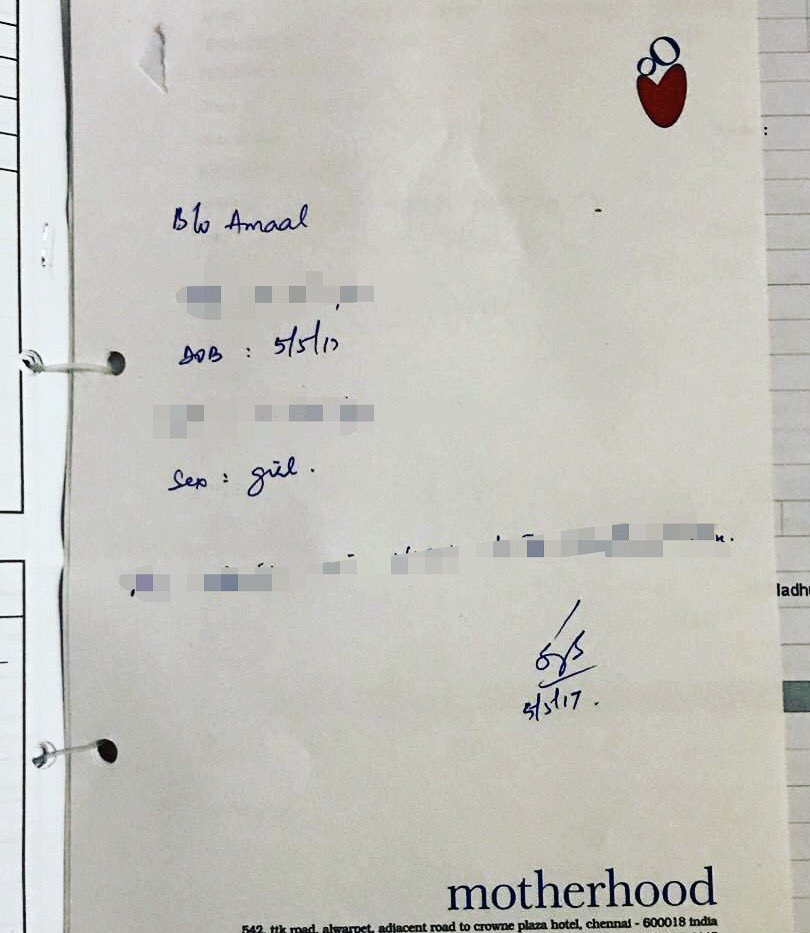 B/o Amaal
DOB : 5/5/17
Sex : girl.
5/5/17.
ladhu
motherhood
542, ttk road, alwarpet, adjacent road to crowne plaza hotel, chennai - 600018 india